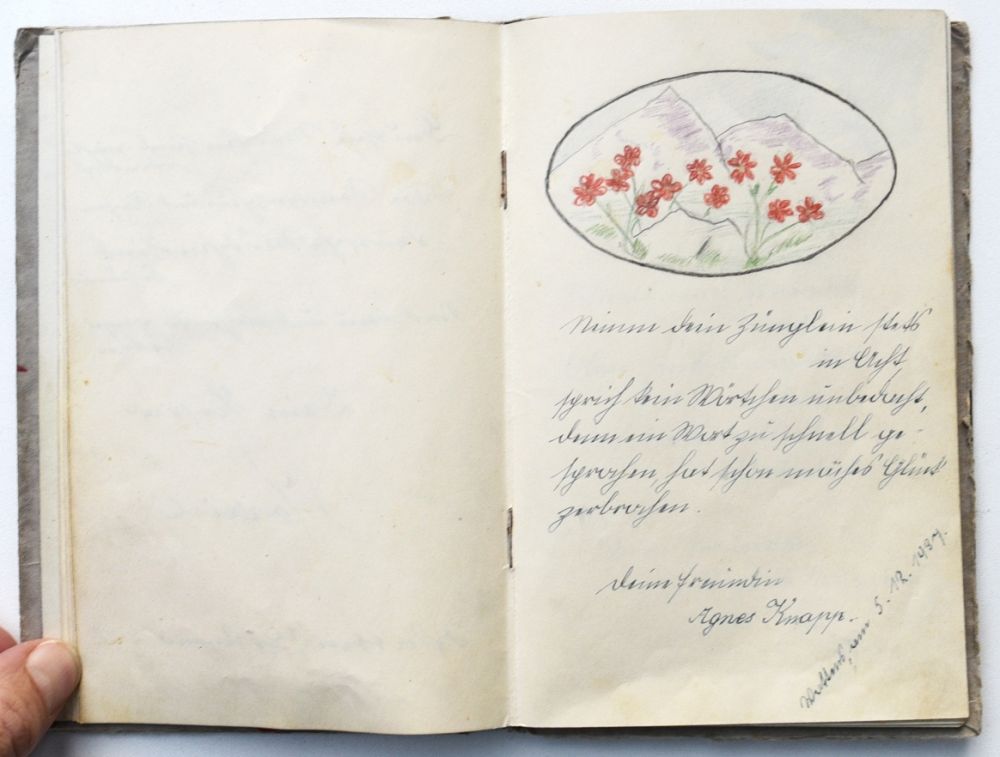 Nimm dein Zünglein stets
in Acht,
sprich kein Wörtchen unbedacht,
denn ein Wort zu schnell ge-
sprochen, hat schon manches Glück
zerbrochen.
Deine Freundin
Agnes Knapp.
am 5. 12. 1937.